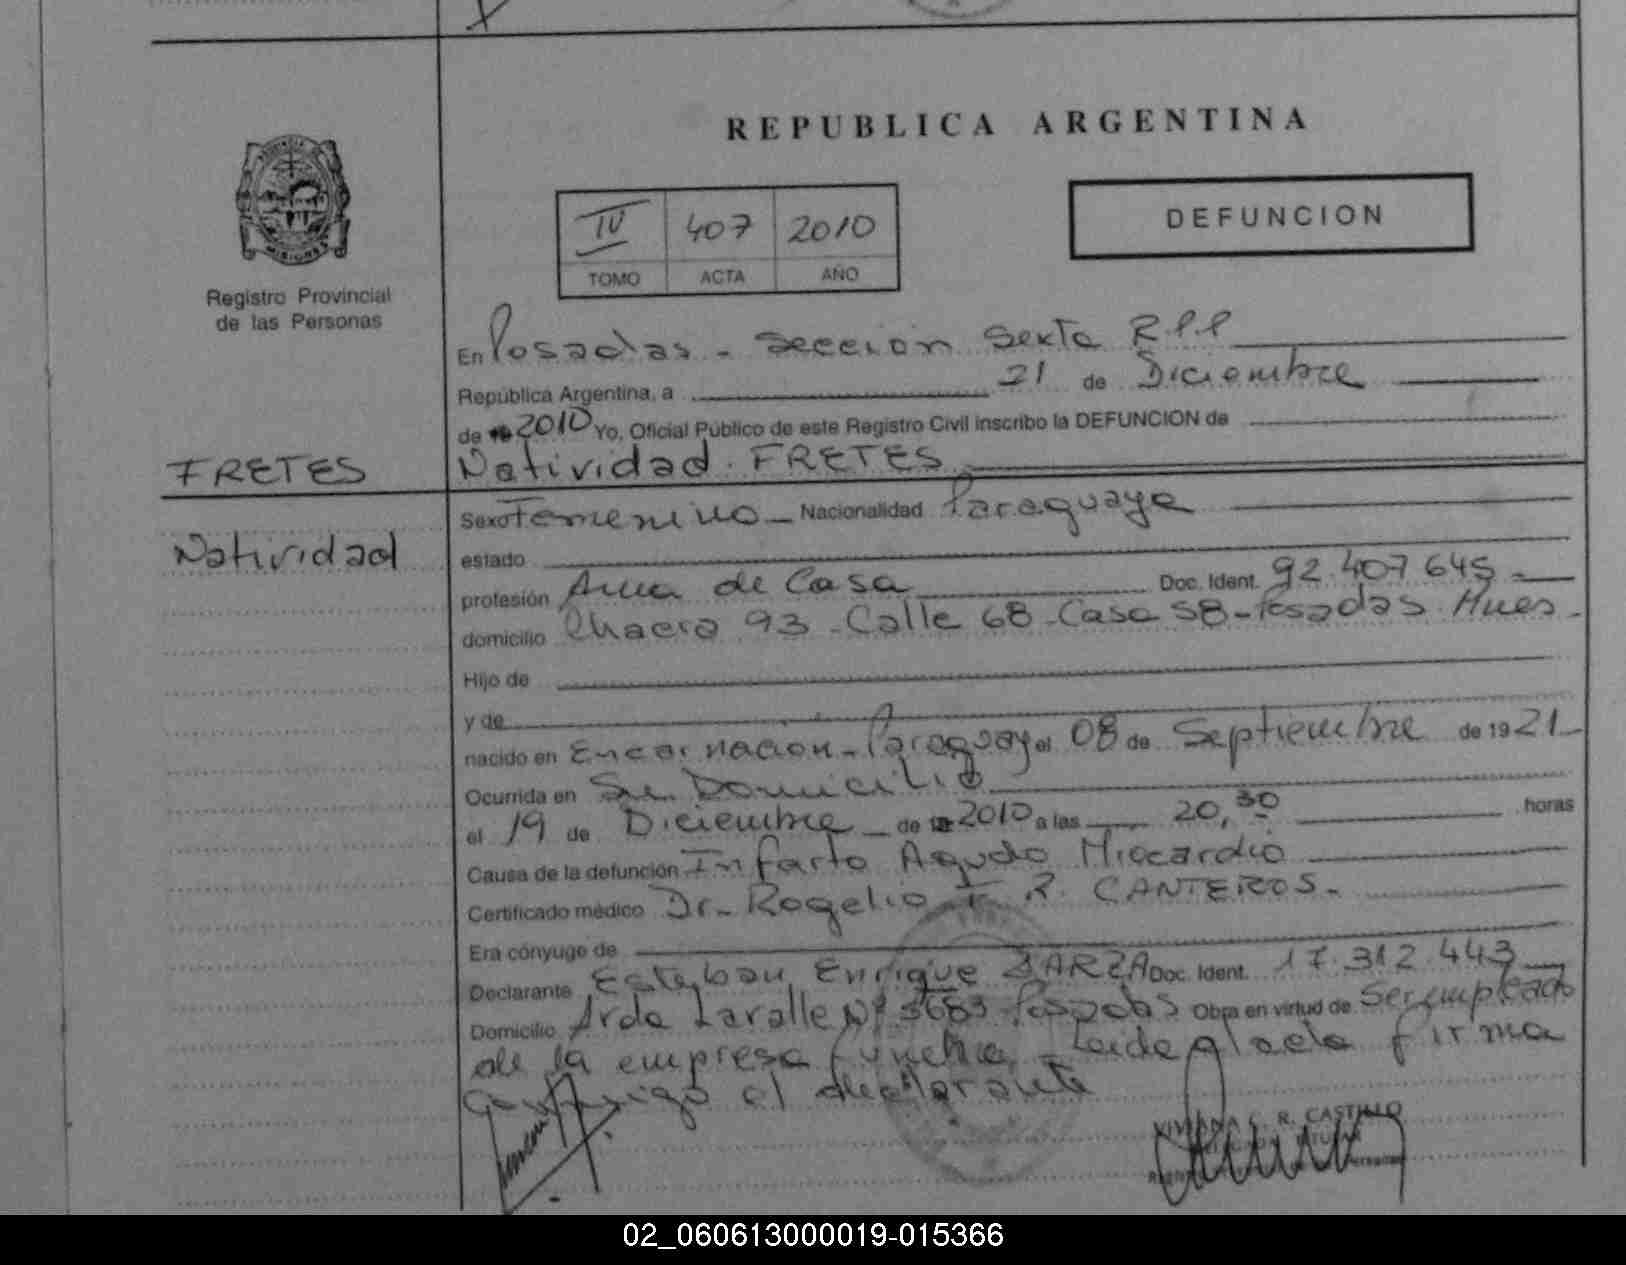 REPUBLICA ARGENTINA
PROVINCIA DE
MISIONES
Registro Provincial
de las Personas
IV 407 2010
TOMO ACTA AÑO
DEFUNCION
En Posadas - Seccion Sexta R P P
República Argentina, a 21 de Diciembre
de 2010 Yo, Oficial Público de este Registro Civil inscribo la DEFUNCION de
FRETES
Natividad FRETES
Natividad
Sexo Femenino - Nacionalidad Paraguaya
estado
profesión Ama de Casa Doc. Ident. 92.407.645 -
domicilio Chacra 93 - Calle 68 - Casa 58 - Posadas Mnes -
Hijo de
y de
nacido en Encarnacion - Paraguay el 08 de Septiembre de 1921
Ocurrida en Su Domicilio
el 19 de Diciembre - de 2010 a las 20,30 horas
Causa de la defunción Infarto Agudo Miocardio
Certificado médico Dr. Rogelio I. R. CANTEROS -
Era cónyuge de
Declarante Esteban Enrique Doc. Ident. 17.312.443
Domicilio Avda Lavalle Nº 3683 Posadas Obra en virtud de Ser empleado
de la empresa Leida el acta firma
conmigo el declarante
R. CASTILLO
02_060613000019-015366